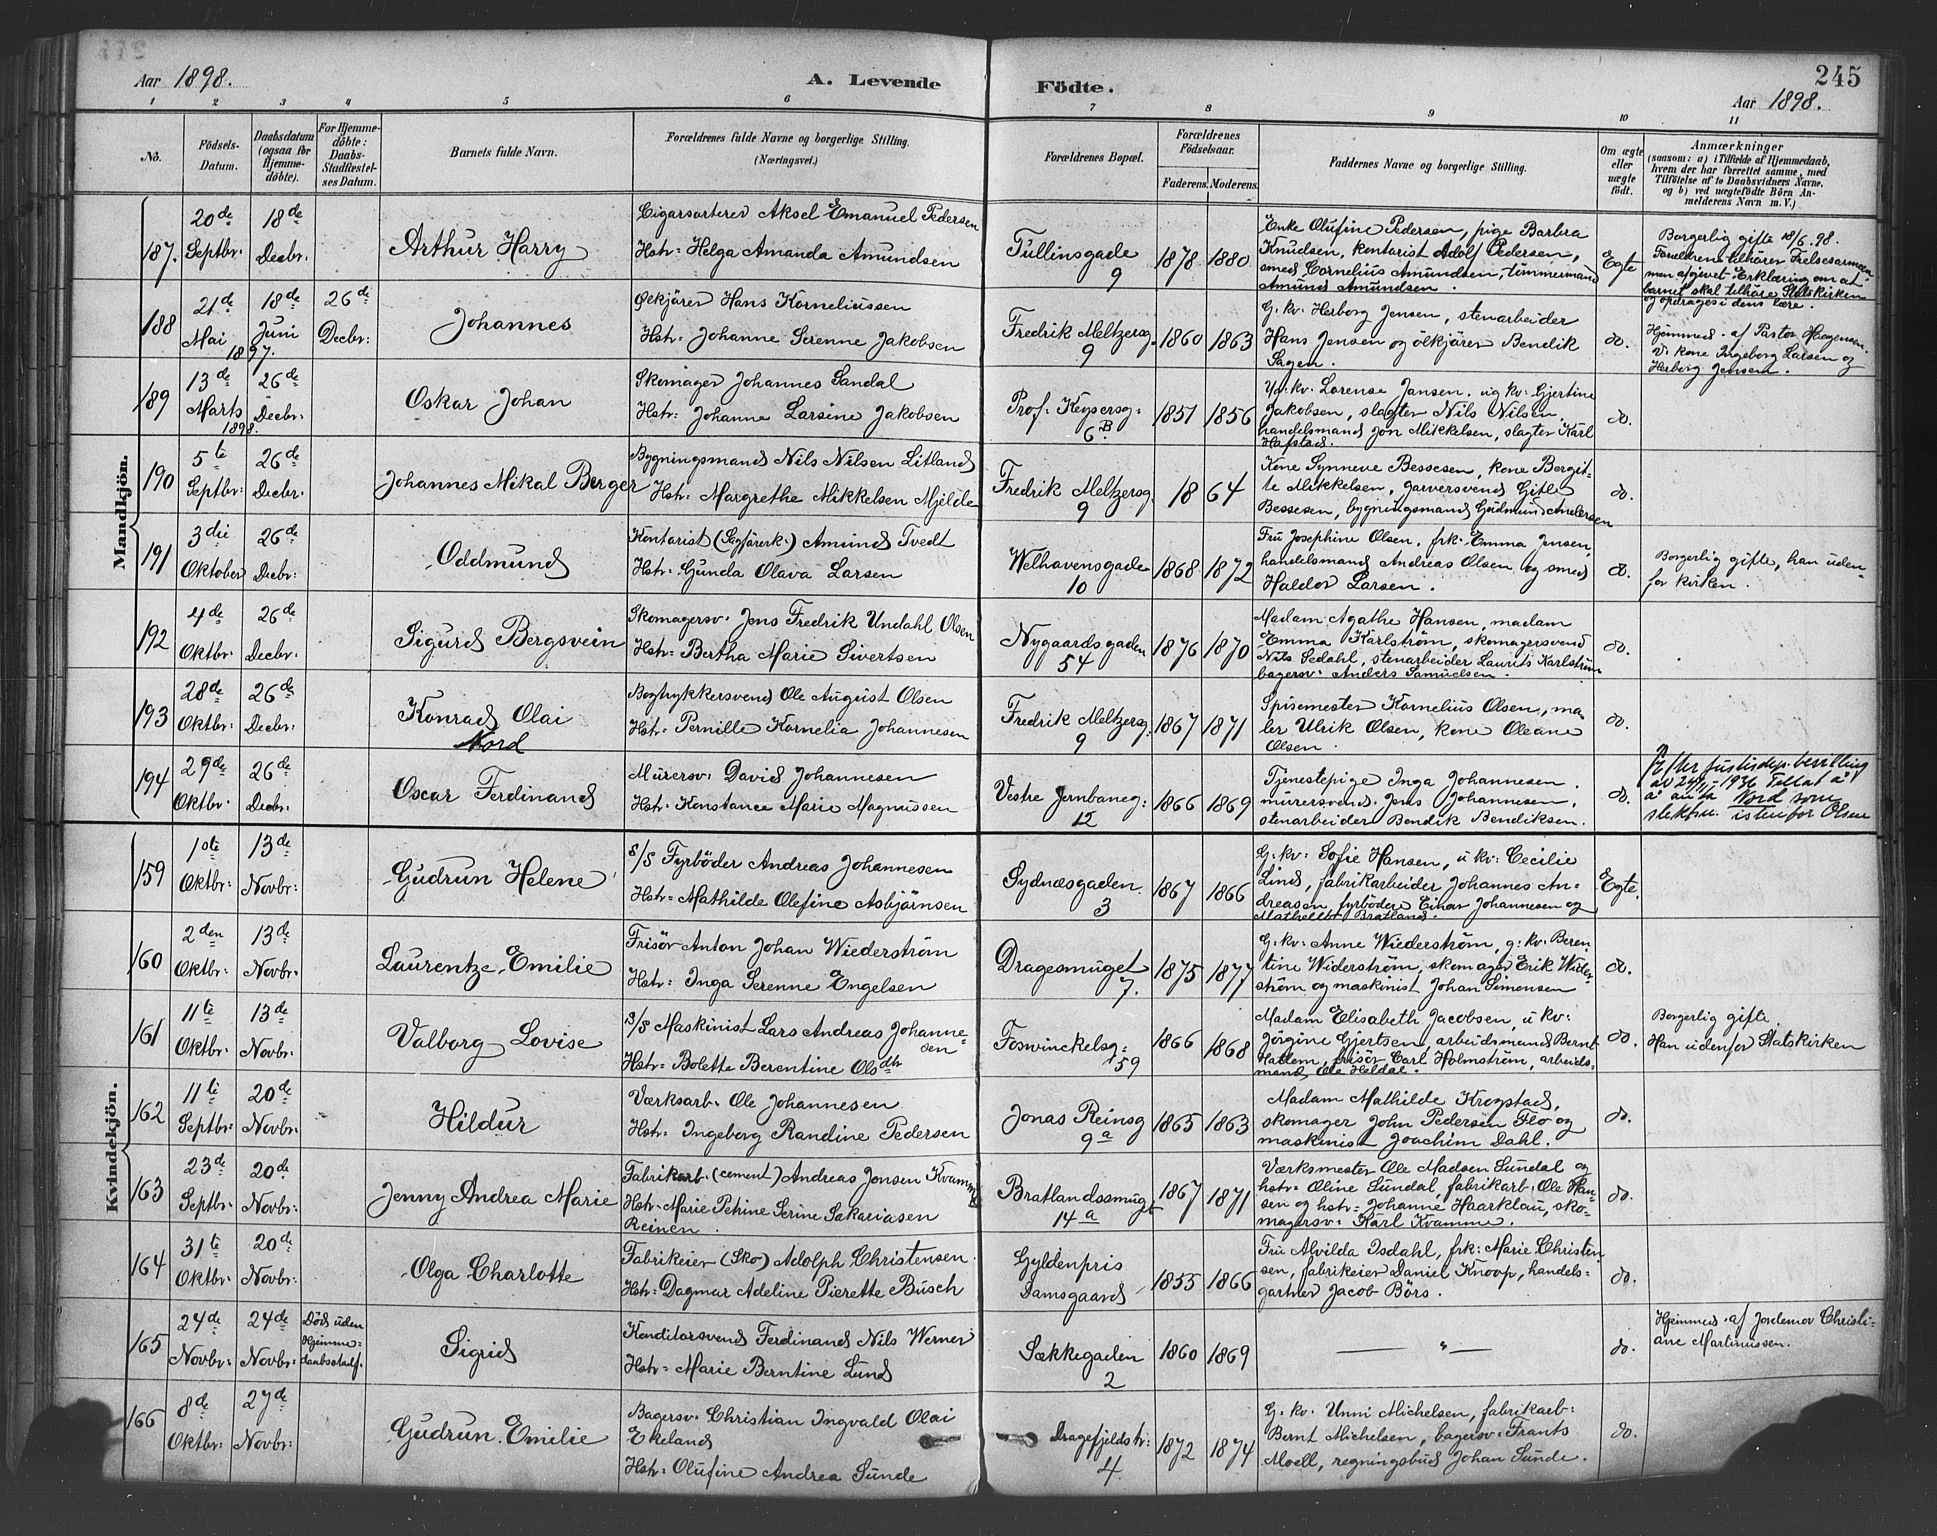 Aar 1898.
A. Levende Födte.
245
Aar 1898.
1 2 3 4 5 6 7 8 9 10 11
No.
Födsels-Datum.
Daabsdatum (ogsaa for Hjemme-döbte).
For Hjemme-döbte: Daabs-Stadfæstel-ses Datum.
Barnets fulde Navn.
Forældrenes fulde Navne og borgerlige Stilling. (Næringsvei.)
Forældrenes Bopæl.
Forældrenes Födselsaar.
Faderens. Moderens.
Faddernes Navne og borgerlige Stilling.
Om ægte eller uægte födt.
Anmærkninger
(saasom: a) i Tilfælde af Hjemmedaab,
hvem der har forrettet samme, med
Tilföielse af to Daabsvidners Navne,
og b) ved uægtefödte Börn An-
melderens Navn m. V.)
Mandkjön.
187. 20de Septbr: 18de Decbr:
Arthur Harry
Cigarsorterer Aksel Emanuel Pedersen
Hstr: Helga Amanda Amundsen
Tullinsgade 9
1878 1880
Enke Olufine Pedersen, pige Barbra
Knudsen, kontorist Adolf Pedersen,
smed Cornelius Amundsen, tömmermand
Amund Amundsen.
Egte
Borgerlig gifte 18/6.98.
Forældrene tilhörer Frelsesarmeen
men afgivet Erklæring om at
barnet skal tilhöre Statskirken
og opdrages i dens lære.
188 21de Mai 1897. 18de Juni 26de Decbr:
Johannes
Ölkjörer Hans Korneliussen
Hstr: Johanne Serenne Jakobsen
Fredrik Meltzersg. 9
1860 1863
G. kv. Herborg Jensen, stenarbeider
Hans Jensen og ölkjörer Bendik
Sagen.
do.
Hjemmed. af Pastor Haagensen.
V. kone Ingeborg Larsen og
Herborg Jensen.
189 13de Marts 1898. 26de Decbr:
Oskar Johan
Skomager Johannes Sandal
Hstr: Johanne Larsine Jakobsen
Prof. Keysersg: 6B
1851 1856
Lorense Jansen, ug kv: Gjertine
Jakobsen, slagter Nils Nilsen
handelsmand Jon Mikkelsen, slagter Karl
Hafstad.
do.
190 5te Septbr: 26de Decbr:
Johannes Mikal Berger
Bygningsmand Nils Nilsen Litland
Hstr: Margrethe Mikkelsen Mjelde
Fredrik Meltzersg. 9
18 64
Kone Synneve Bessesen, kone Bergit-
te Mikkelsen, garversvend Gitle
Bessesen, bygningsmand Gudmund Andersen
do.
191 3die Oktober 26de Decbr:
Oddmund
Kontorist (Sagförerk.) Amund Tvedt
Hstr: Gunda Olava Larsen
Welhavensgade 10
1868 1872
Fru Josephine Olsen, frk: Emma Jensen,
handelsmand Andreas Olsen og smed
Haldor Larsen.
do.
Borgerlig gifte, han uden-
for kirken.
192 4de Oktbr: 26de Decbr:
Sigurd Bergsvein
Skomagersv: Jens Fredrik Undahl Olsen
Hstr: Bertha Marie Sivertsen
Nygaardsgaden 54
1876 1870
Madam Agathe Hansen, madam
Emma Karlström, skomagersvend
Nils Sedahl, stenarbeider Laurits Karlström
bagersv: Anders Samuelsen.
do.
193 28de Oktbr: 26de Decbr:
Konrad Olai
Nord
Bogtrykkersvend Ole August Olsen
Hstr: Pernille Kornelia Johannesen
Fredrik Meltzersg. 9
1867 1871
Spisemester Kornelius Olsen, ma-
ler Ulrik Olsen, kone Oleane
Olsen.
do.
194 29de Oktbr. 26de Decbr:
Oscar Ferdinand
Murersv: David Johannesen
Hstr: Konstance Marie Magnussen
Vestre Jernbaneg: 12
1866 1869
Tjenestepige Inga Johannesen.
murersvend Jens Johannesen,
stenarbeider Bendik Bendiksen.
do.
Efter justisdep. bevilling
av 1936 Tillat å
å anta Nord som
slektsn. istenfor Olsen
Kvindekjön.
159 1ste Oktbr: 13de Novbr:
Gudrun Helene
S/S Fyrböder Andreas Johannesen
Hstr: Mathilde Olefine Asbjörnsen
Sydnæsgaden 3
1867 1866
G. kv: Sofie Hansen, u kv: Cecilie
Lind, fabrikarbeider Johannes An-
dreasen, fyrböder Einar Johannesen og
Bratland.
Egte.
160 2den Oktbr: 13de Novbr:
Laurentze Emilie
Frisör Anton Johan Wiederström
Hstr: Inga Serenne Engelsen
Dragesmuget 7.
1875 1877
G. kv: Anne Wiederström, g: kv: Beren-
tine Widerström, skomager Erik Wider-
ström og maskinist Johan Simonsen
do.
161 11te Oktbr: 13de Novbr:
Valborg Lovise
S/S Maskinist Lars Andreas Johanne-
sen
Hstr: Bolette Berentine Olsdtr
Foswinckelsg: 59
1866 1868
Madam Elisabeth Jacobsen, u kv:
Jörgine Gjertsen, arbeidsmand Bernt
Hatlem, frisör Carl Holmström, arbeids-
mand Ole Heldal.
do.
Borgerlig gifte
Han udenfor Statskirken
162 11te Septbr: 20de Novbr:
Hildur
Værksarb. Ole Johannesen
Hstr: Ingeborg Randine Pedersen
Jonas Reinsg 9a
1865 1863
Madam Mathilde Krogstad,
skomager John Pedersen Flo og
maskinist Joachim Dahl.
do.
163 23de Septbr: 20de Novbr:
Jenny Andrea Marie
Fabrikarb. (cement) Andreas Jonsen Kvamme
Hstr: Marie Petrine Serine Sakariasen
Reinen.
Bratlandssmuget 14a
1867 1871
Værksmester Ole Madsen Sundal og
hstr: Oline Sundal, fabrikarb. Ole Han-
sen og hstr: Johanne Haarklau, sko-
magersv: Karl Kvamme.
do.
164 31te Oktbr: 20de Novbr:
Olga Charlotte
Fabrikeier (Sko) Adolph Christensen.
Hstr: Dagmar Adeline Pierette Busch
Gyldenpris
Damsgaard
1855 1866
Fru Alvilda Isdahl, frk: Marie Christen
sen, fabrikeier Daniel Knoop, handels-
gartner Jacob Börs.
do.
165 24de Novbr: 24de Novbr:
Död uden
Hjemme-
daabsstadf.
Sigrid
Konditorsvend Ferdinand Nils Werner
Hstr: Marie Berntine Lund
Sækkegaden 2
1860 1869
— " —
do.
Hjemmed. af Jordemor Christi-
ane Martinussen.
166 8de Oktbr: 27de Novbr:
Gudrun Emilie
Bagersv: Christian Ingvald Olai
Ekeland
Hstr: Olufine Andrea Sunde
Dragefjeldstr: 4
1872 1874
G. kv: Unni Michelsen, fabrikarb:
Bernt Michelsen, bagersv: Frants
Moell, regningsbud Johan Sunde.
do.